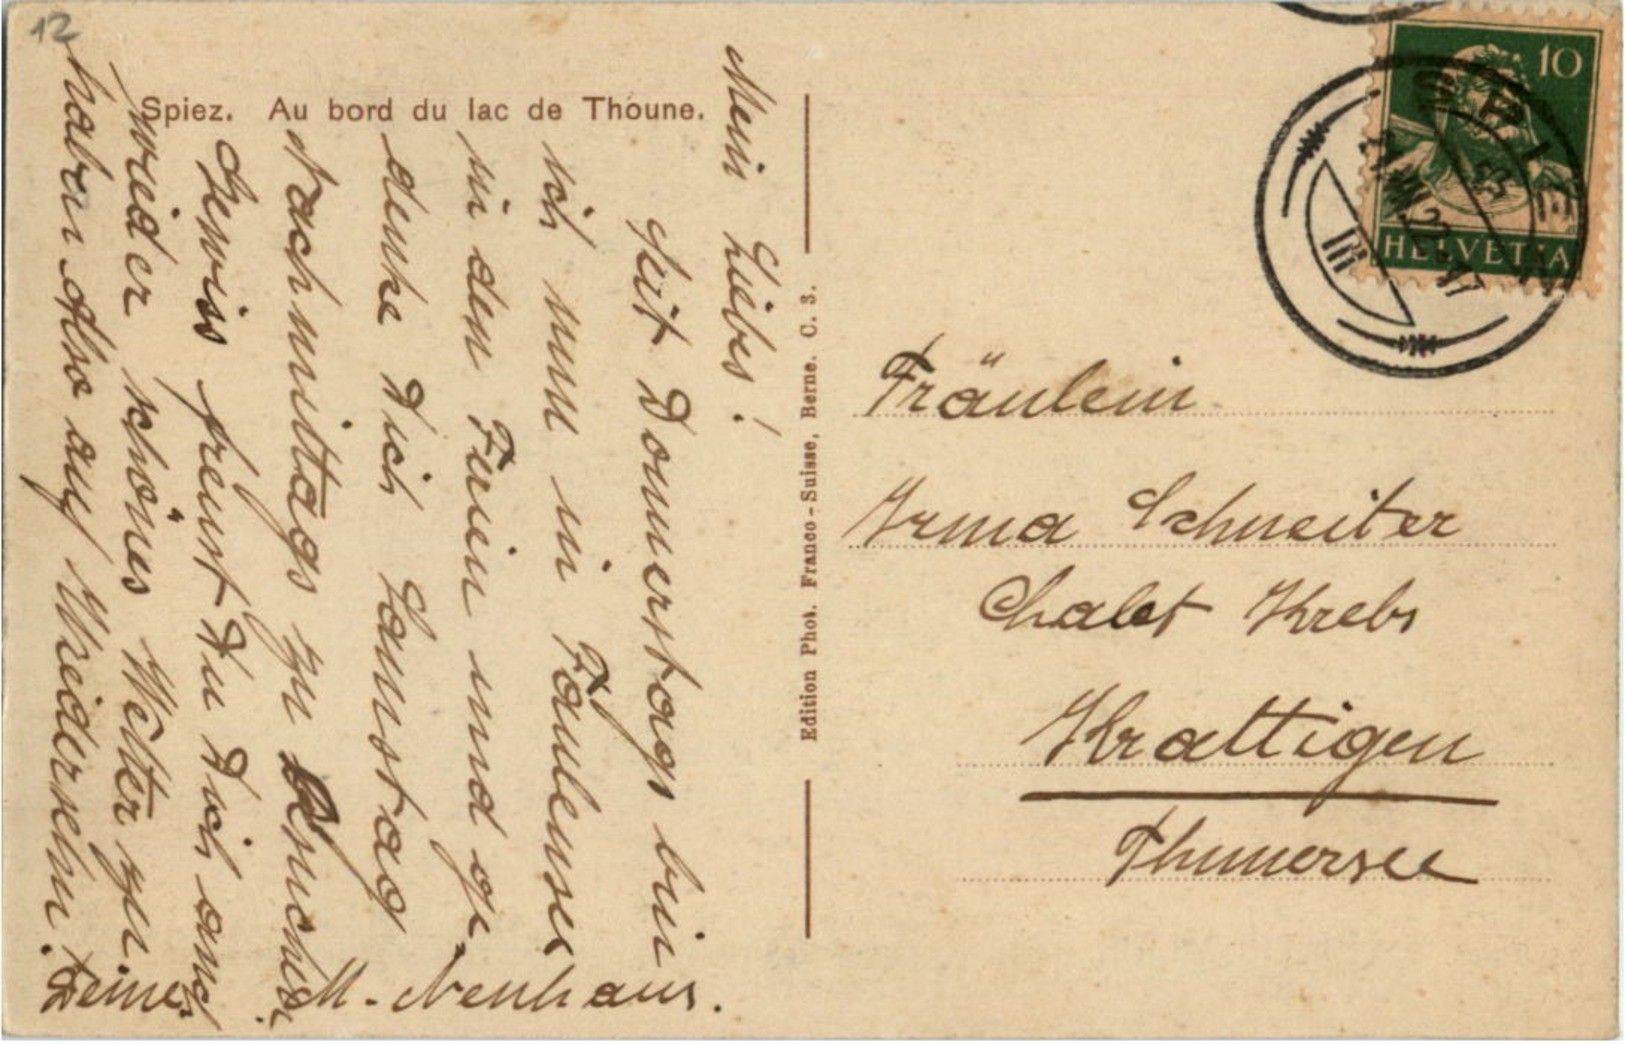 12
Spiez. Au bord du lac de Thoune.
Mein Liebs!
Seit Donnerstags bin
ich nun in Faulensee
in den Ferien und ge
denke Dich Samstag
Nachmittags zu besuchen.
Gewiss freust Du Dich auch
wieder schönes Wetter zu
haben. Also auf Wiedersehn.
Deine
M. Neuhaus.
Edition Phot. Franco-Suisse, Berne. C. 3.
10
HELVETIA
III
Fräulein
Irma Schneiter
Chalet Krebs
Krattigen
Thunersee